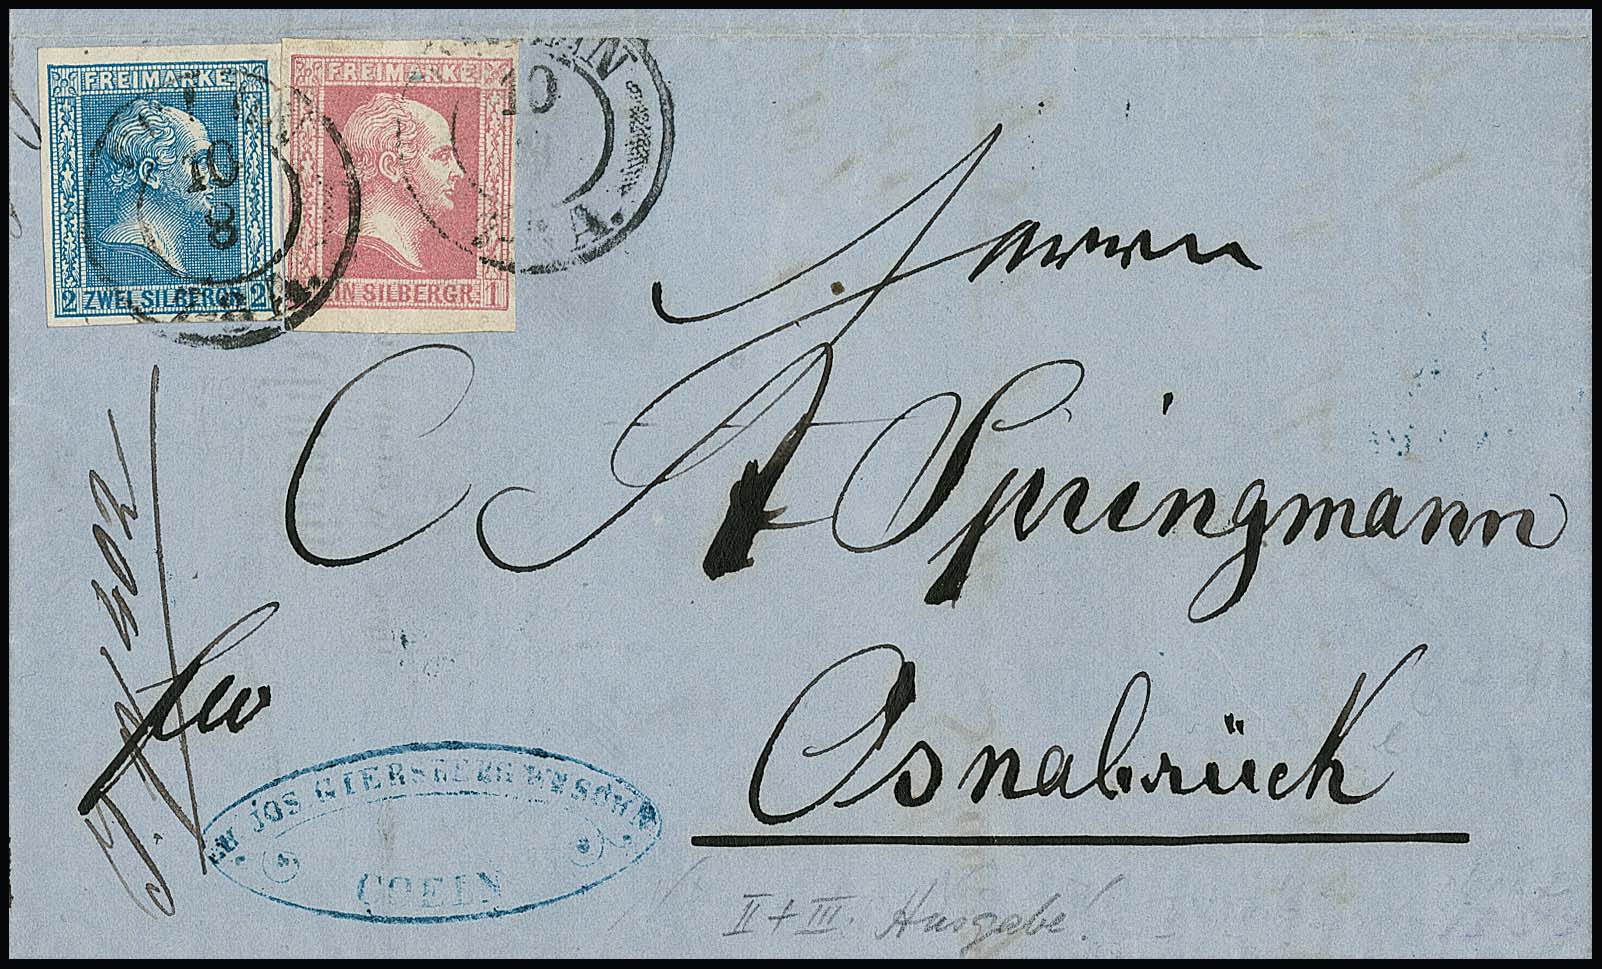 FREIMARKE
2 ZWEI SILBERGR. 2
FREIMARKE
IN SILBERGR. 1
10
8
10
A.
Herrn
C A Springmann
Osnabrück
fco
402
JOS GIERSBERG WWE SOHN
COELN
II + III. Ausgabe!